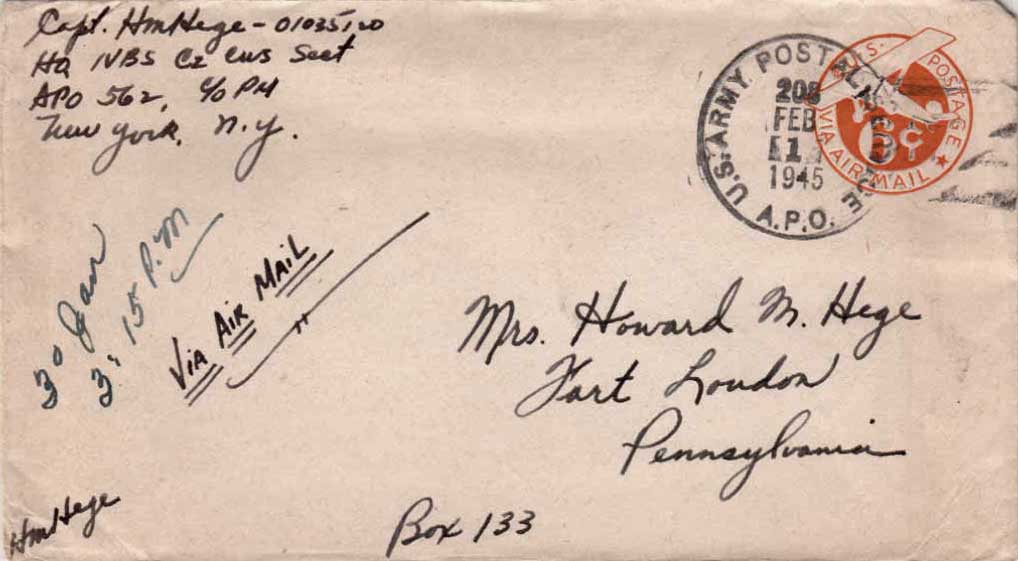 Capt. HM Hege - 01035120
HQ NBS Cz CWS Sect
APO 562, c/o PM
New York, N.Y.
U.S. ARMY POSTAL SERVICE
A.P.O.
208
FEB
1
1945
U.S. POSTAGE
6¢
VIA AIR MAIL
30 Jan
3:15 P.M
VIA AIR MAIL
Mrs. Howard M. Hege
Fort Loudon
Pennsylvania
HM Hege
Box 133